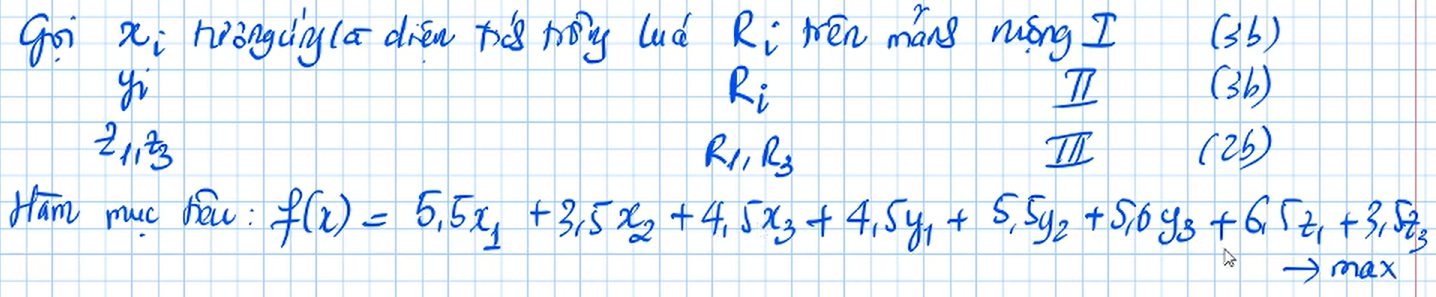 Gọi xᵢ tương ứng là diện tích trồng lúa Rᵢ trên mảnh ruộng I (3b)
yᵢ Rᵢ II (3b)
z₁, z₃ R₁, R₃ III (2b)
Hàm mục tiêu: f(x) = 5,5x₁ + 3,5x₂ + 4,5x₃ + 4,5y₁ + 5,5y₂ + 5,0y₃ + 6,5z₁ + 3,5z₃
→ max